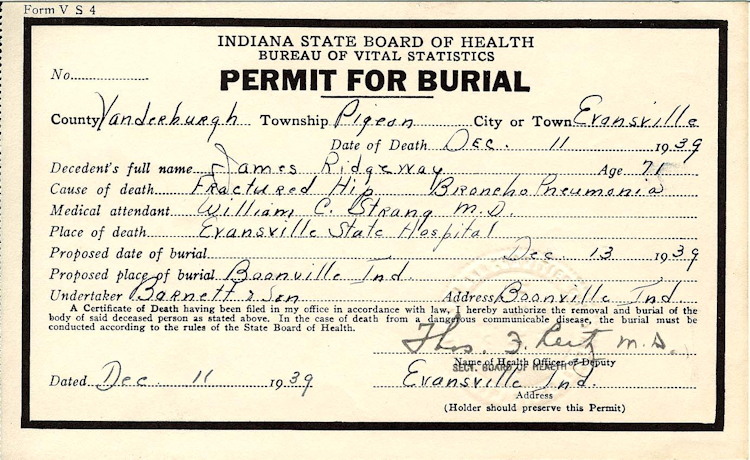 Form V S 4
INDIANA STATE BOARD OF HEALTH
BUREAU OF VITAL STATISTICS
No.
PERMIT FOR BURIAL
County Vanderburgh Township Pigeon City or Town Evansville
Date of Death Dec. 11 1939
Decedent's full name James Ridgeway Age 71
Cause of death Fractured Hip Broncho Pneumonia
Medical attendant William C. Strang M.D.
Place of death Evansville State Hospital
Proposed date of burial Dec. 13 1939
Proposed place of burial Boonville Ind.
Undertaker Barnett & Son Address Boonville Ind
A Certificate of Death having been filed in my office in accordance with law, I hereby authorize the removal and burial of the
body of said deceased person as stated above. In the case of death from a dangerous communicable disease, the burial must be
conducted according to the rules of the State Board of Health.
Thos. F. Reitz M.D.
Name of Health Officer or Deputy
SECT. BOARD OF HEALTH
Dated Dec. 11 1939 Evansville Ind.
Address
(Holder should preserve this Permit)